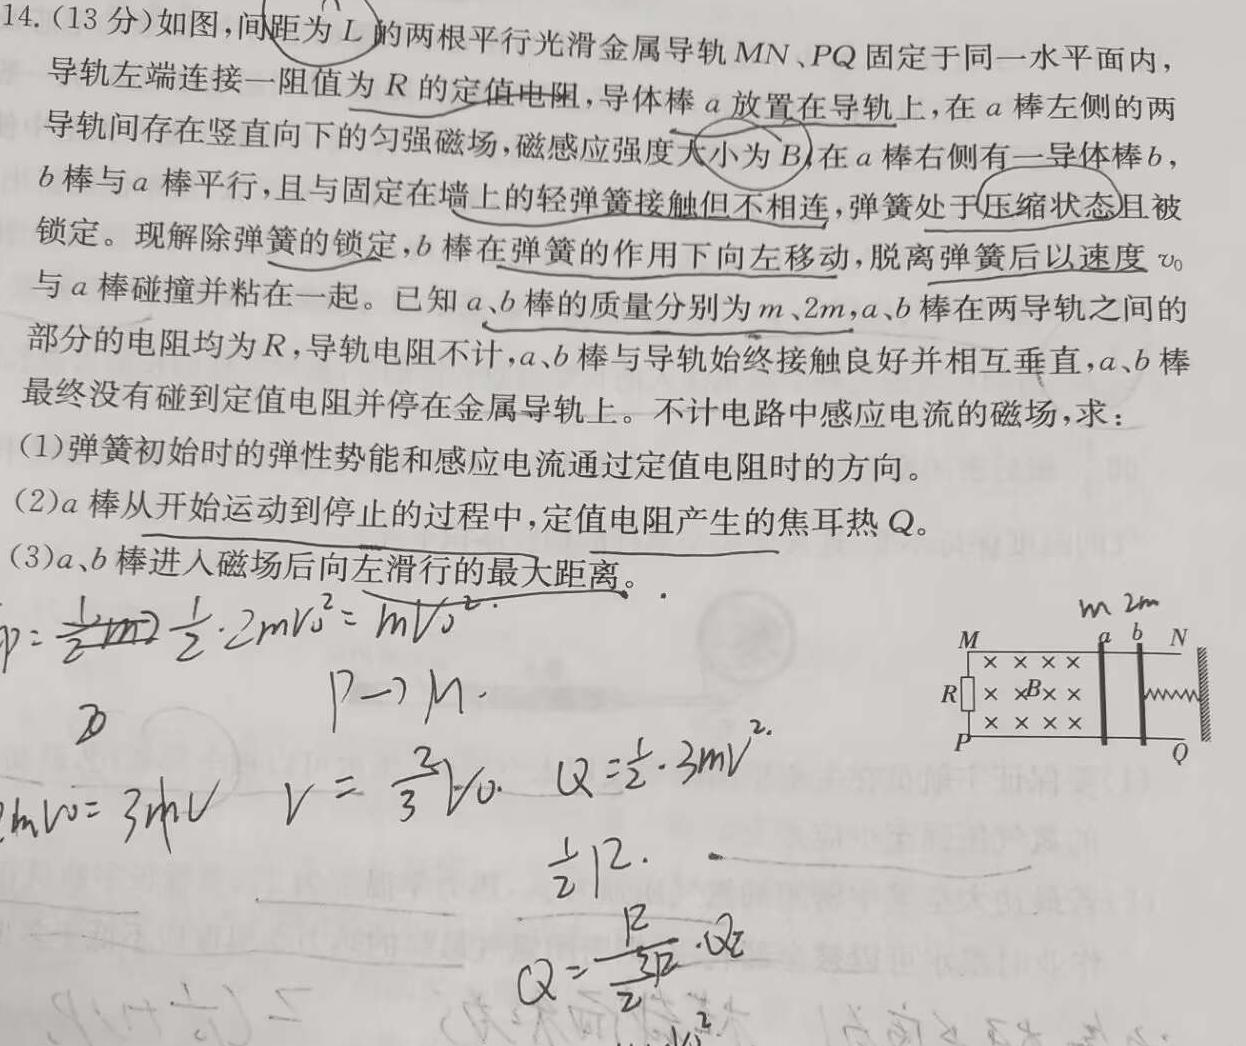 14.(13分)如图,间距为L的两根平行光滑金属导轨MN、PQ固定于同一水平面内,
导轨左端连接一阻值为R的定值电阻,导体棒a放置在导轨上,在a棒左侧的两
导轨间存在竖直向下的匀强磁场,磁感应强度大小为B,在a棒右侧有一导体棒b,
b棒与a棒平行,且与固定在墙上的轻弹簧接触但不相连,弹簧处于压缩状态且被
锁定。现解除弹簧的锁定,b棒在弹簧的作用下向左移动,脱离弹簧后以速度v₀
与a棒碰撞并粘在一起。已知a、b棒的质量分别为m、2m,a、b棒在两导轨之间的
部分的电阻均为R,导轨电阻不计,a、b棒与导轨始终接触良好并相互垂直,a、b棒
最终没有碰到定值电阻并停在金属导轨上。不计电路中感应电流的磁场,求:
(1)弹簧初始时的弹性势能和感应电流通过定值电阻时的方向。
(2)a棒从开始运动到停止的过程中,定值电阻产生的焦耳热Q。
(3)a、b棒进入磁场后向左滑行的最大距离。
m 2m
M a b N
R B
P Q
p= 1/2·2mV₀²=mV₀²
P→M.
2mV₀=3mV V=2/3V₀. Q=1/2·3mV².
1/2R.
Q=R/(3R/2)·Q